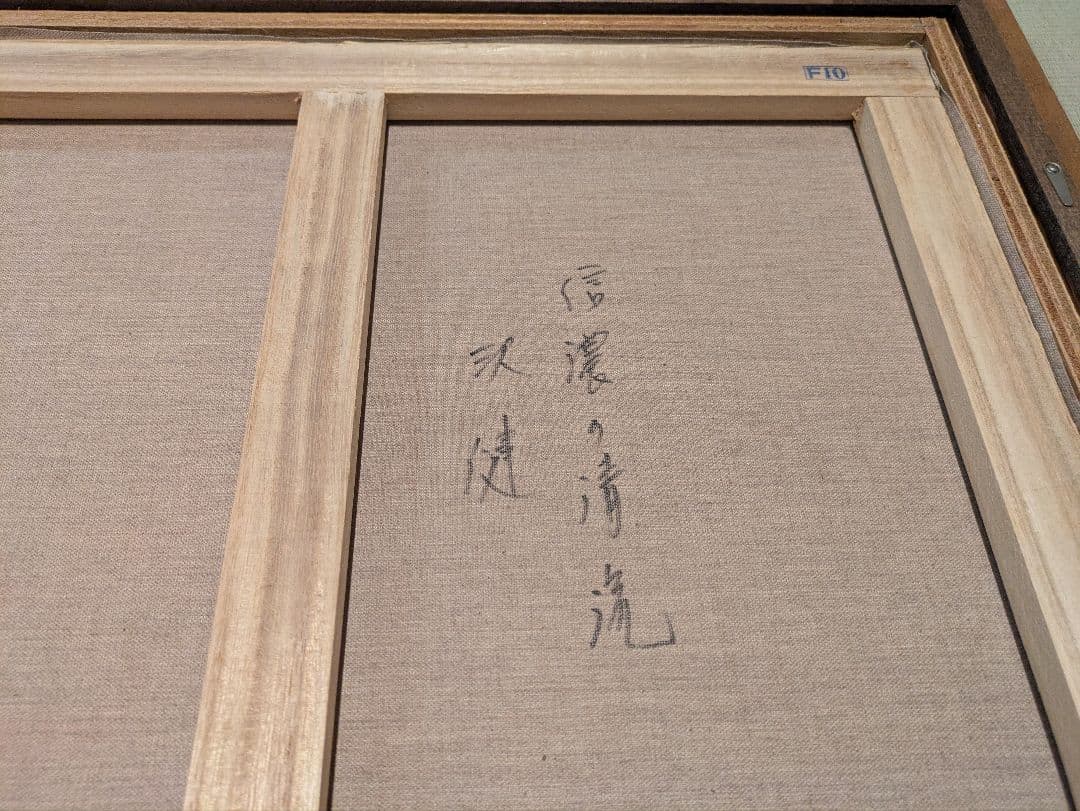 F10
信濃の清流
沢健